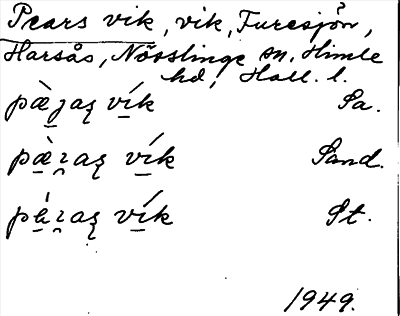 Pears vik, vik, Furesjön,
Harsås, Nösslinge sn, Himle
hd, Hall. l.
pæ̀ɹaʂ vík Sa.
pæ̀ɹaʂ vík Sand.
pé̱ɹaʂ vík St.
1949.